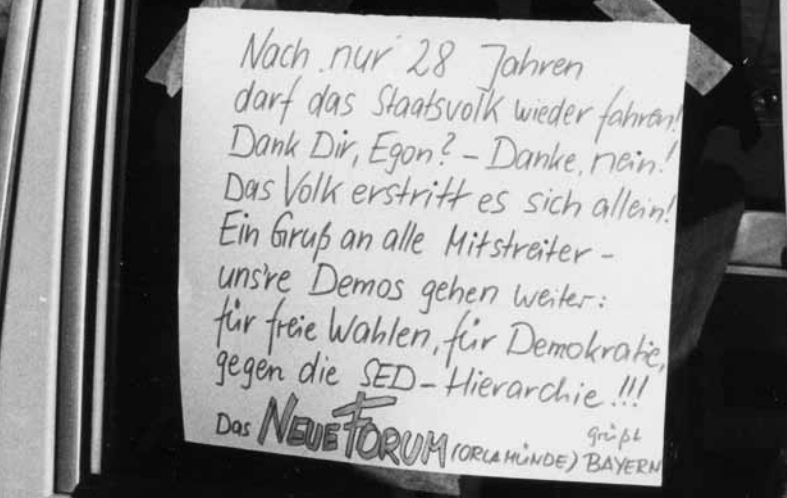 Nach nur 28 Jahren
darf das Staatsvolk wieder fahren!
Dank Dir, Egon? – Danke, nein!
Das Volk erstritt es sich allein!
Ein Gruß an alle Mitstreiter –
uns're Demos gehen weiter:
für freie Wahlen, für Demokratie,
gegen die SED-Hierarchie!!!
Das NEUE FORUM (ORLAMÜNDE) grüßt BAYERN